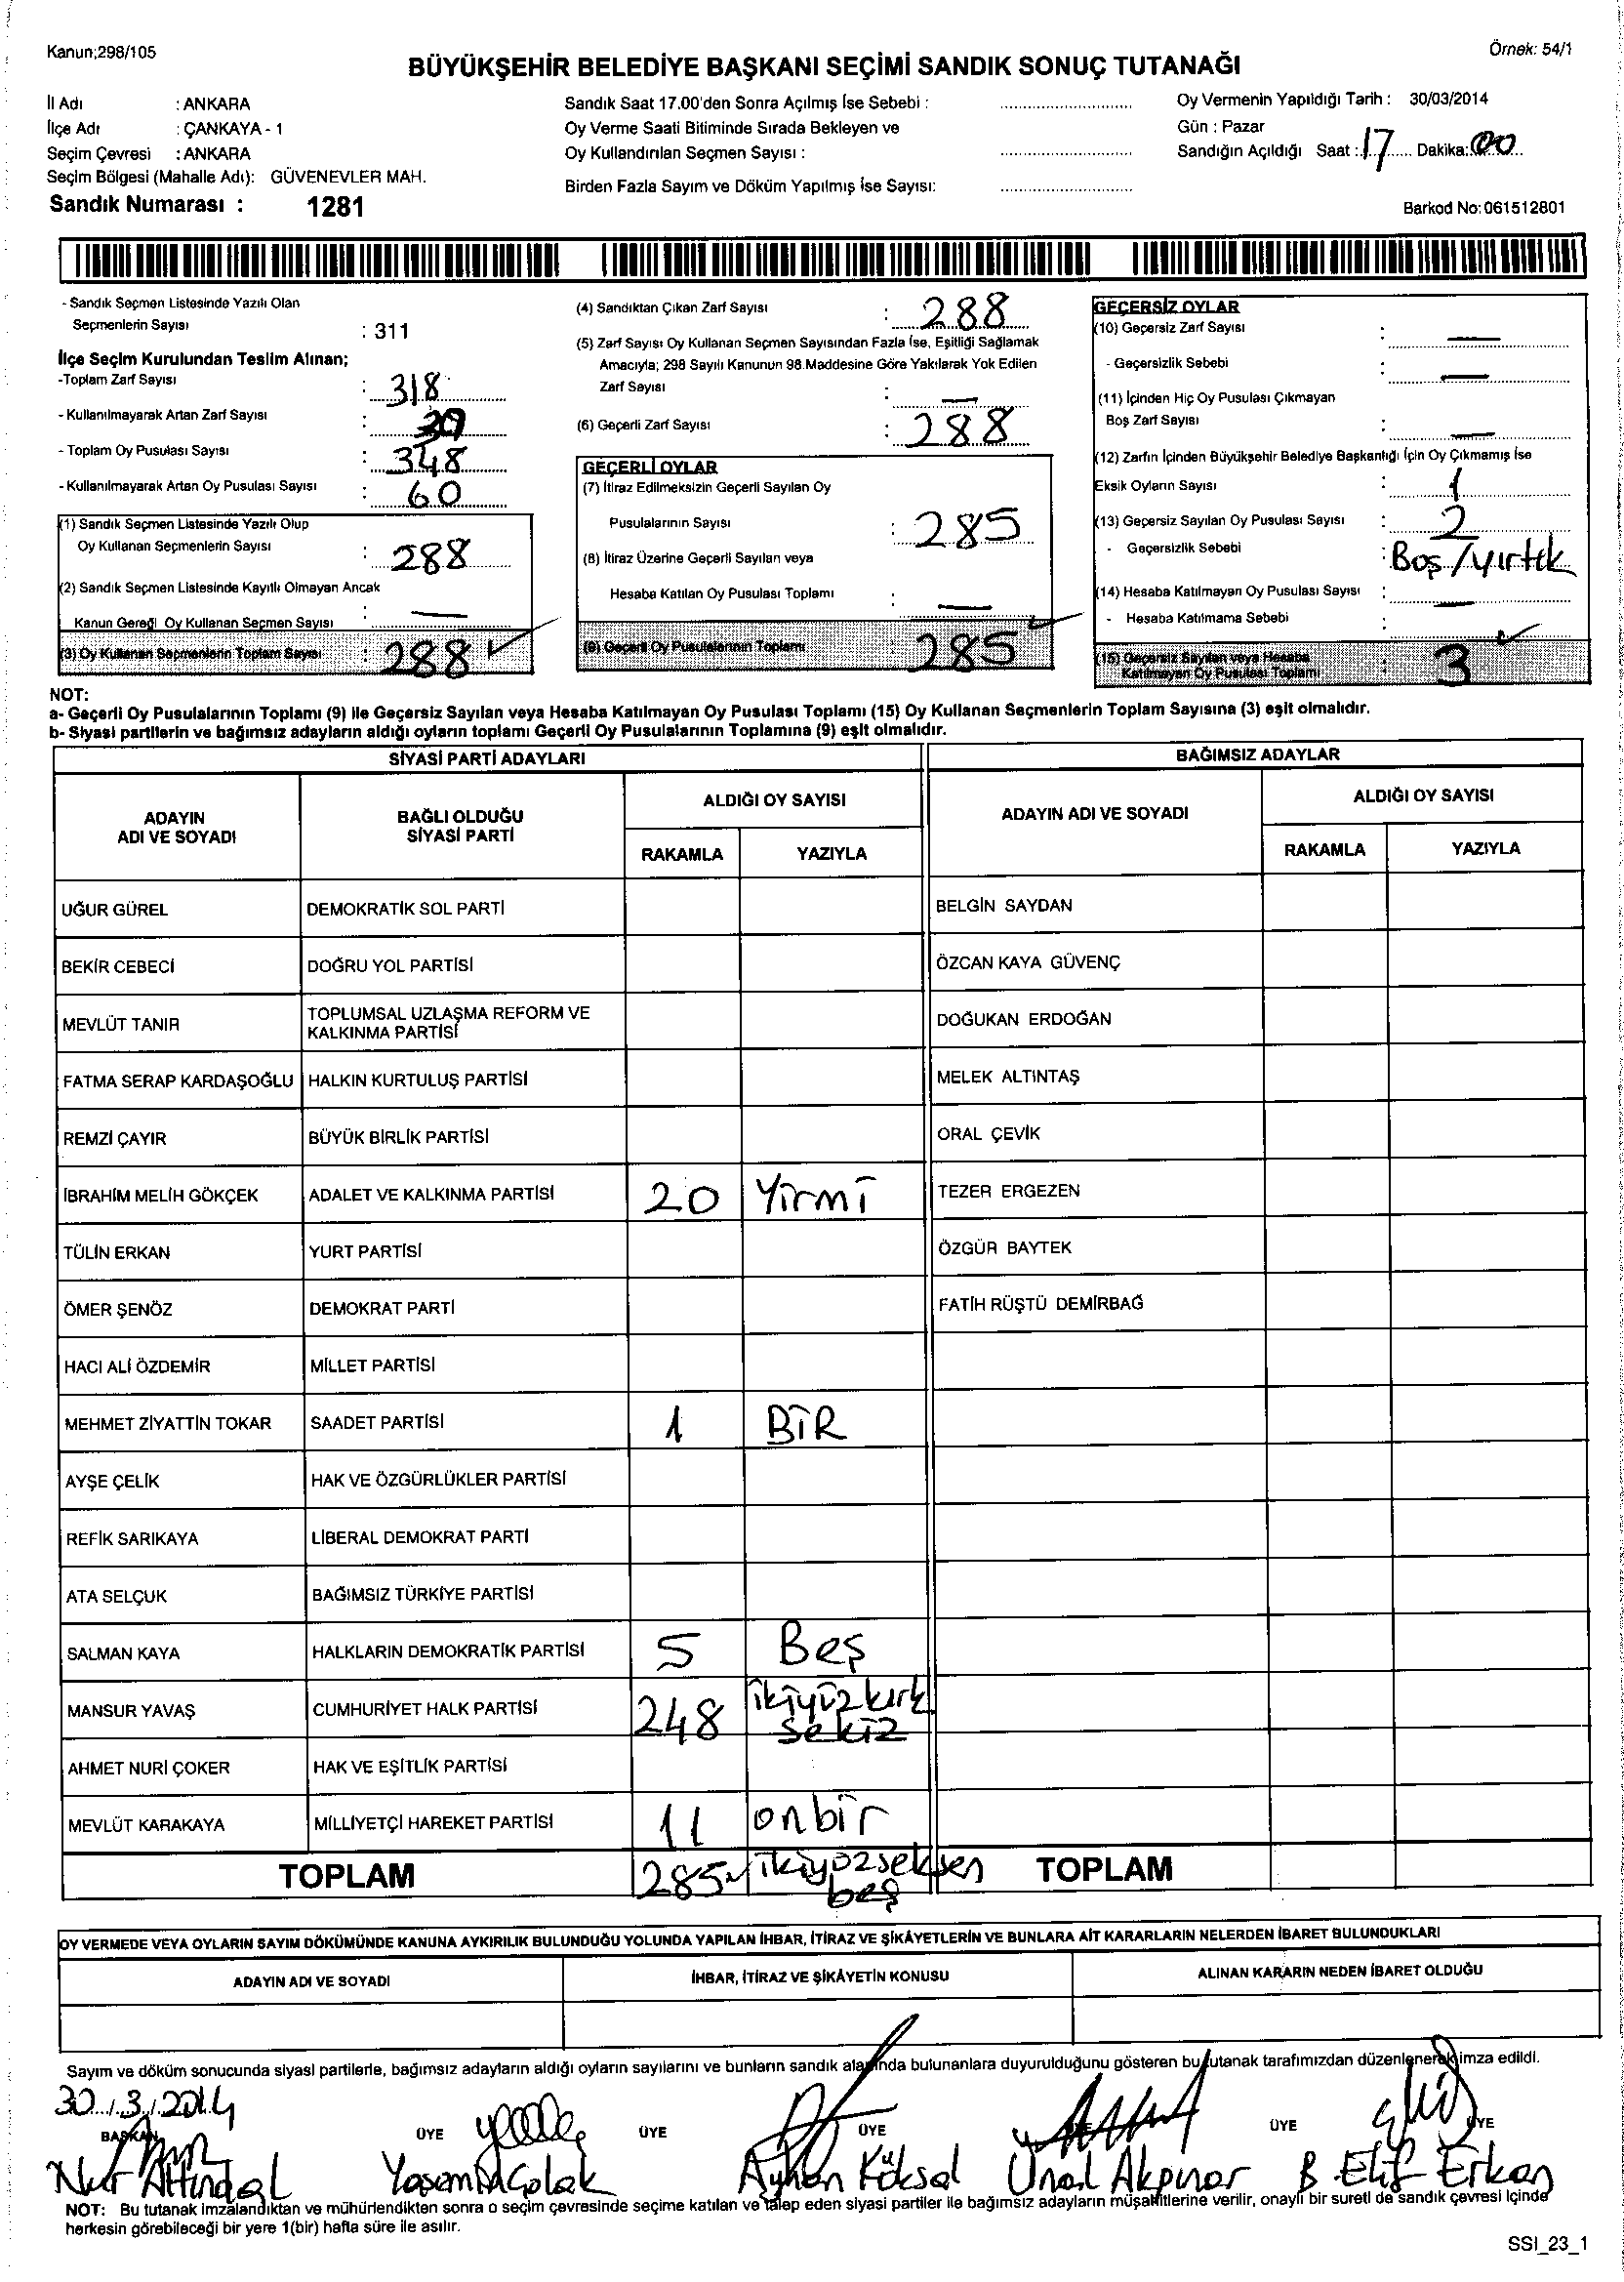 Kanun;298/105
Örnek: 54/1
BÜYÜKŞEHİR BELEDİYE BAŞKANI SEÇİMİ SANDIK SONUÇ TUTANAĞI
İl Adı : ANKARA
İlçe Adı : ÇANKAYA - 1
Seçim Çevresi : ANKARA
Seçim Bölgesi (Mahalle Adı): GÜVENEVLER MAH.
Sandık Numarası : 1281
Sandık Saat 17.00'den Sonra Açılmış İse Sebebi :
Oy Verme Saati Bitiminde Sırada Bekleyen ve
Oy Kullandırılan Seçmen Sayısı :
Birden Fazla Sayım ve Döküm Yapılmış İse Sayısı:
Oy Vermenin Yapıldığı Tarih : 30/03/2014
Gün : Pazar
Sandığın Açıldığı Saat : 17 Dakika: 00
Barkod No: 061512801
- Sandık Seçmen Listesinde Yazılı Olan
Seçmenlerin Sayısı : 311
İlçe Seçim Kurulundan Teslim Alınan;
-Toplam Zarf Sayısı : 318
- Kullanılmayarak Artan Zarf Sayısı : 30
- Toplam Oy Pusulası Sayısı : 348
- Kullanılmayarak Artan Oy Pusulası Sayısı : 60
(1) Sandık Seçmen Listesinde Yazılı Olup
Oy Kullanan Seçmenlerin Sayısı : 288
(2) Sandık Seçmen Listesinde Kayıtlı Olmayan Ancak
Kanun Gereği Oy Kullanan Seçmen Sayısı : —
(3) Oy Kullanan Seçmenlerin Toplam Sayısı : 288 ✓
(4) Sandıktan Çıkan Zarf Sayısı : 288
(5) Zarf Sayısı Oy Kullanan Seçmen Sayısından Fazla İse, Eşitliği Sağlamak
Amacıyla; 298 Sayılı Kanunun 98.Maddesine Göre Yakılarak Yok Edilen
Zarf Sayısı : —
(6) Geçerli Zarf Sayısı : 288
GEÇERLİ OYLAR
(7) İtiraz Edilmeksizin Geçerli Sayılan Oy
Pusulalarının Sayısı : 285
(8) İtiraz Üzerine Geçerli Sayılan veya
Hesaba Katılan Oy Pusulası Toplamı : —
(9) Geçerli Oy Pusulalarının Toplamı : 285 ✓
GEÇERSİZ OYLAR
(10) Geçersiz Zarf Sayısı : —
- Geçersizlik Sebebi : —
(11) İçinden Hiç Oy Pusulası Çıkmayan
Boş Zarf Sayısı : —
(12) Zarfın İçinden Büyükşehir Belediye Başkanlığı İçin Oy Çıkmamış İse
Eksik Oyların Sayısı : 1
(13) Geçersiz Sayılan Oy Pusulası Sayısı : 2
- Geçersizlik Sebebi : Boş/yırtık
(14) Hesaba Katılmayan Oy Pusulası Sayısı : —
- Hesaba Katılmama Sebebi :
(15) Geçersiz Sayılan veya Hesaba
Katılmayan Oy Pusulası Toplamı : 3 ✓
NOT:
a- Geçerli Oy Pusulalarının Toplamı (9) ile Geçersiz Sayılan veya Hesaba Katılmayan Oy Pusulası Toplamı (15) Oy Kullanan Seçmenlerin Toplam Sayısına (3) eşit olmalıdır.
b- Siyasi partilerin ve bağımsız adayların aldığı oyların toplamı Geçerli Oy Pusulalarının Toplamına (9) eşit olmalıdır.
SİYASİ PARTİ ADAYLARI
ADAYIN
ADI VE SOYADI
BAĞLI OLDUĞU
SİYASİ PARTİ
ALDIĞI OY SAYISI
RAKAMLA YAZIYLA
UĞUR GÜREL DEMOKRATİK SOL PARTİ
BEKİR CEBECİ DOĞRU YOL PARTİSİ
MEVLÜT TANIR TOPLUMSAL UZLAŞMA REFORM VE
KALKINMA PARTİSİ
FATMA SERAP KARDAŞOĞLU HALKIN KURTULUŞ PARTİSİ
REMZİ ÇAYIR BÜYÜK BİRLİK PARTİSİ
İBRAHİM MELİH GÖKÇEK ADALET VE KALKINMA PARTİSİ 20 Yirmi
TÜLİN ERKAN YURT PARTİSİ
ÖMER ŞENÖZ DEMOKRAT PARTİ
HACI ALİ ÖZDEMİR MİLLET PARTİSİ
MEHMET ZİYATTİN TOKAR SAADET PARTİSİ 1 BİR
AYŞE ÇELİK HAK VE ÖZGÜRLÜKLER PARTİSİ
REFİK SARIKAYA LİBERAL DEMOKRAT PARTİ
ATA SELÇUK BAĞIMSIZ TÜRKİYE PARTİSİ
SALMAN KAYA HALKLARIN DEMOKRATİK PARTİSİ 5 Beş
MANSUR YAVAŞ CUMHURİYET HALK PARTİSİ 248 ikiyüzkırk
sekiz
AHMET NURİ ÇOKER HAK VE EŞİTLİK PARTİSİ
MEVLÜT KARAKAYA MİLLİYETÇİ HAREKET PARTİSİ 11 onbir
TOPLAM 285 ✓ ikiyüzseksen
beş
BAĞIMSIZ ADAYLAR
ADAYIN ADI VE SOYADI
ALDIĞI OY SAYISI
RAKAMLA YAZIYLA
BELGİN SAYDAN
ÖZCAN KAYA GÜVENÇ
DOĞUKAN ERDOĞAN
MELEK ALTINTAŞ
ORAL ÇEVİK
TEZER ERGEZEN
ÖZGÜR BAYTEK
FATİH RÜŞTÜ DEMİRBAĞ
TOPLAM
OY VERMEDE VEYA OYLARIN SAYIM DÖKÜMÜNDE KANUNA AYKIRILIK BULUNDUĞU YOLUNDA YAPILAN İHBAR, İTİRAZ VE ŞİKÂYETLERİN VE BUNLARA AİT KARARLARIN NELERDEN İBARET BULUNDUKLARI
ADAYIN ADI VE SOYADI İHBAR, İTİRAZ VE ŞİKÂYETİN KONUSU ALINAN KARARIN NEDEN İBARET OLDUĞU
Sayım ve döküm sonucunda siyasi partilerle, bağımsız adayların aldığı oyların sayılarını ve bunların sandık alanında bulunanlara duyurulduğunu gösteren bu tutanak tarafımızdan düzenlenerek imza edildi.
30/3/2014
BAŞKAN ÜYE ÜYE ÜYE ÜYE ÜYE
Nur Altındal Yasemin Çolak Ayhan Köksal Ünal Akpınar B. Elif Erkan
NOT: Bu tutanak imzalandıktan ve mühürlendikten sonra o seçim çevresinde seçime katılan ve talep eden siyasi partiler ile bağımsız adayların müşahitlerine verilir, onaylı bir sureti de sandık çevresi içinde
herkesin görebileceği bir yere 1(bir) hafta süre ile asılır.
SSI_23_1